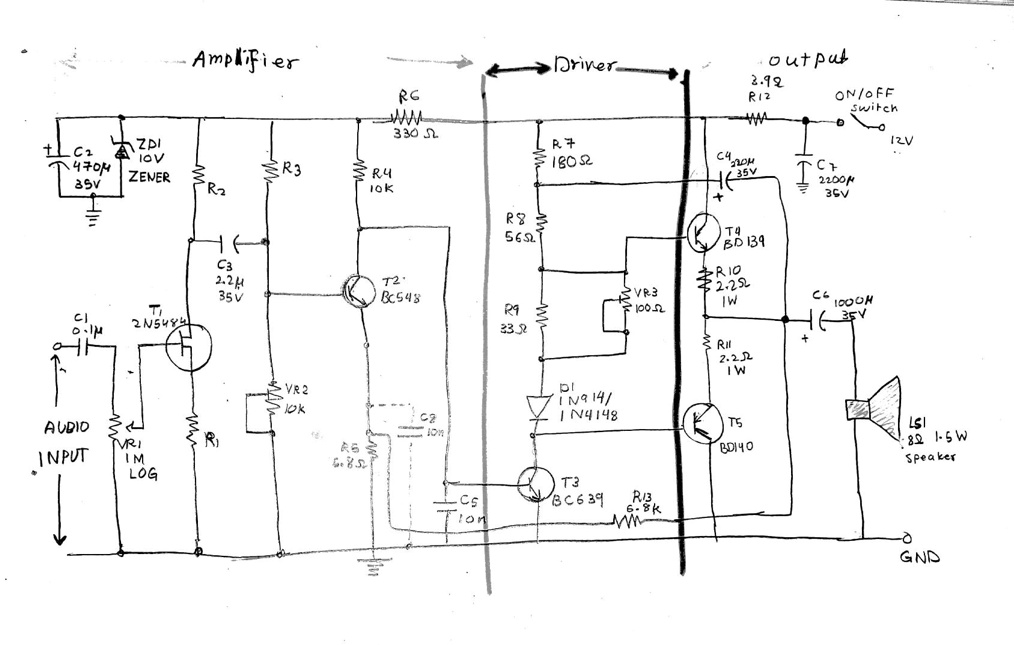 Amplifier
Driver
output
R6
330 Ω
3.9Ω
R12
ON/OFF
switch
12V
+
C2
470µ
35V
ZD1
10V
ZENER
R2
R3
R4
10K
R7
180Ω
C4
220µ
35V
+
C7
2200µ
35V
R8
56Ω
T4
BD139
C3
2.2µ
35V
T2
BC548
R9
33Ω
VR3
100Ω
R10
2.2Ω
1W
C6
1000µ
35V
+
C1
0.1µ
T1
2N5484
R11
2.2Ω
1W
D1
1N914/
1N4148
VR2
10K
AUDIO
INPUT
VR1
1M
LOG
R1
R5
6.8Ω
C8
10n
T5
BD140
LS1
8Ω 1.5W
speaker
T3
BC639
C5
10n
R13
6.8K
GND